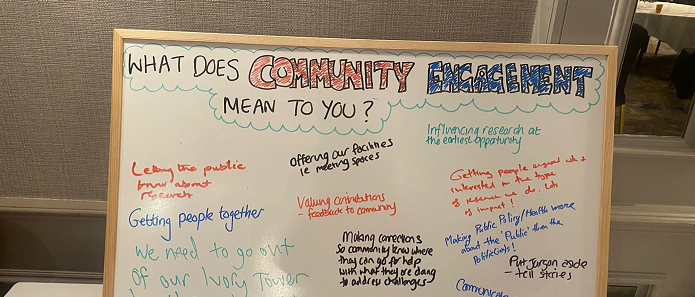 WHAT DOES COMMUNITY ENGAGEMENT
MEAN TO YOU?
Influencing research at
the earliest opportunity
Offering our facilities
ie meeting spaces
Letting the public
know about
research
Getting people
interested in the type
of we do. Lots
of impact!
Valuing contributions
– feedback to community
Getting people together
Making Public Policy/Health more
about the 'Public' than the
Politicians!
Making connections
so community know where
they can go for help
with what they are doing
to address challenges
Put jargon aside
– tell stories
We need to go out
of our Ivory Tower